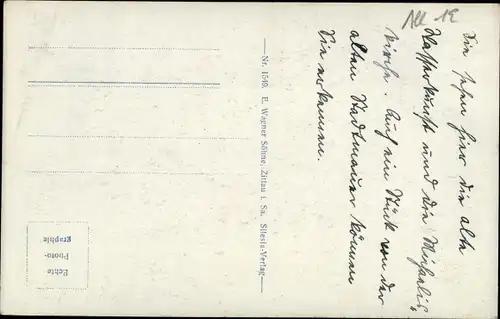 All 19
Sie sehen hier die alte
Wasserkunst und die Michaelis,
kirche. Auch ein Stück von der
alten Stadtmauer können
Sie erkennen.
Nr. 1549. E. Wagner Söhne, Zittau i. Sa. Silesia-Verlag
Echte
Photo-
graphie